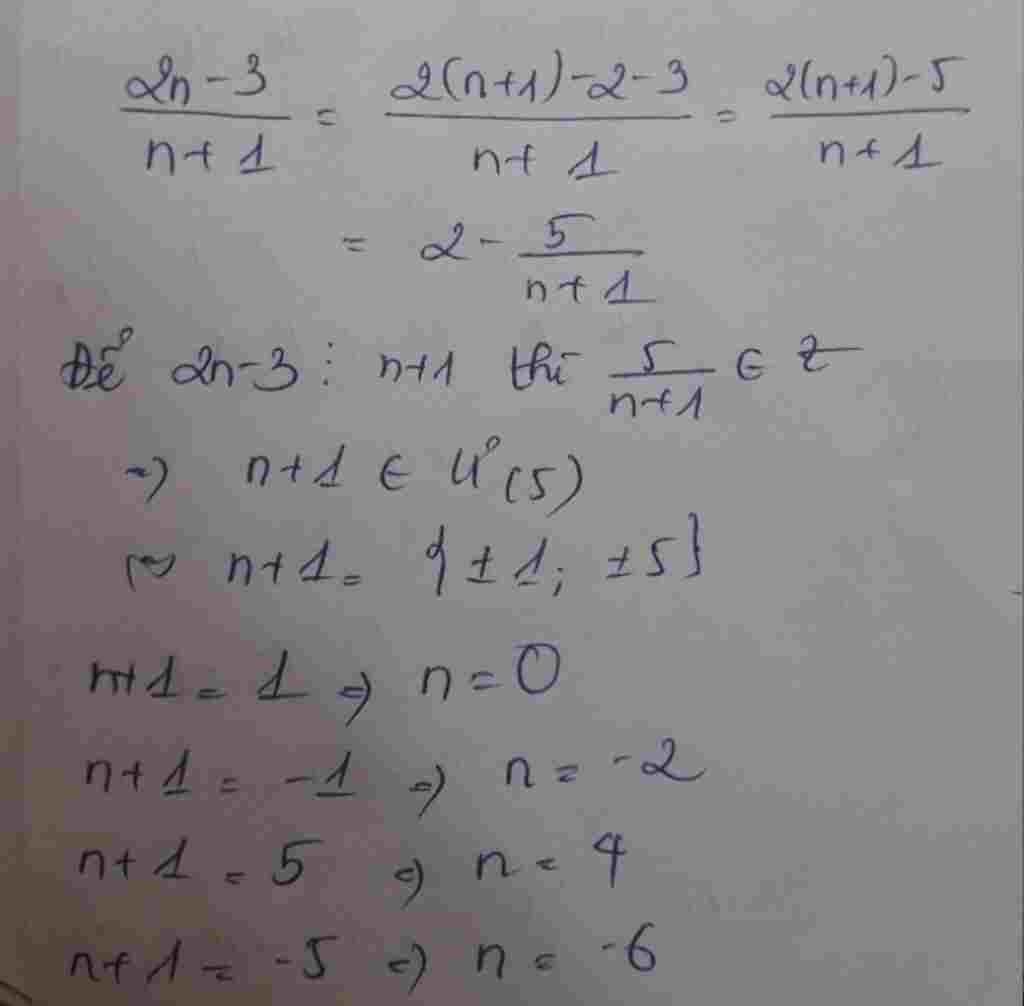 2n-3/n+1 = 2(n+1)-2-3/n+1 = 2(n+1)-5/n+1
= 2 - 5/n+1
Để 2n-3 ⋮ n+1 thì 5/n+1 ∈ Z
=> n+1 ∈ Ư(5)
~ n+1 = {±1; ±5}
n+1 = 1 => n = 0
n+1 = -1 => n = -2
n+1 = 5 => n = 4
n+1 = -5 => n = -6